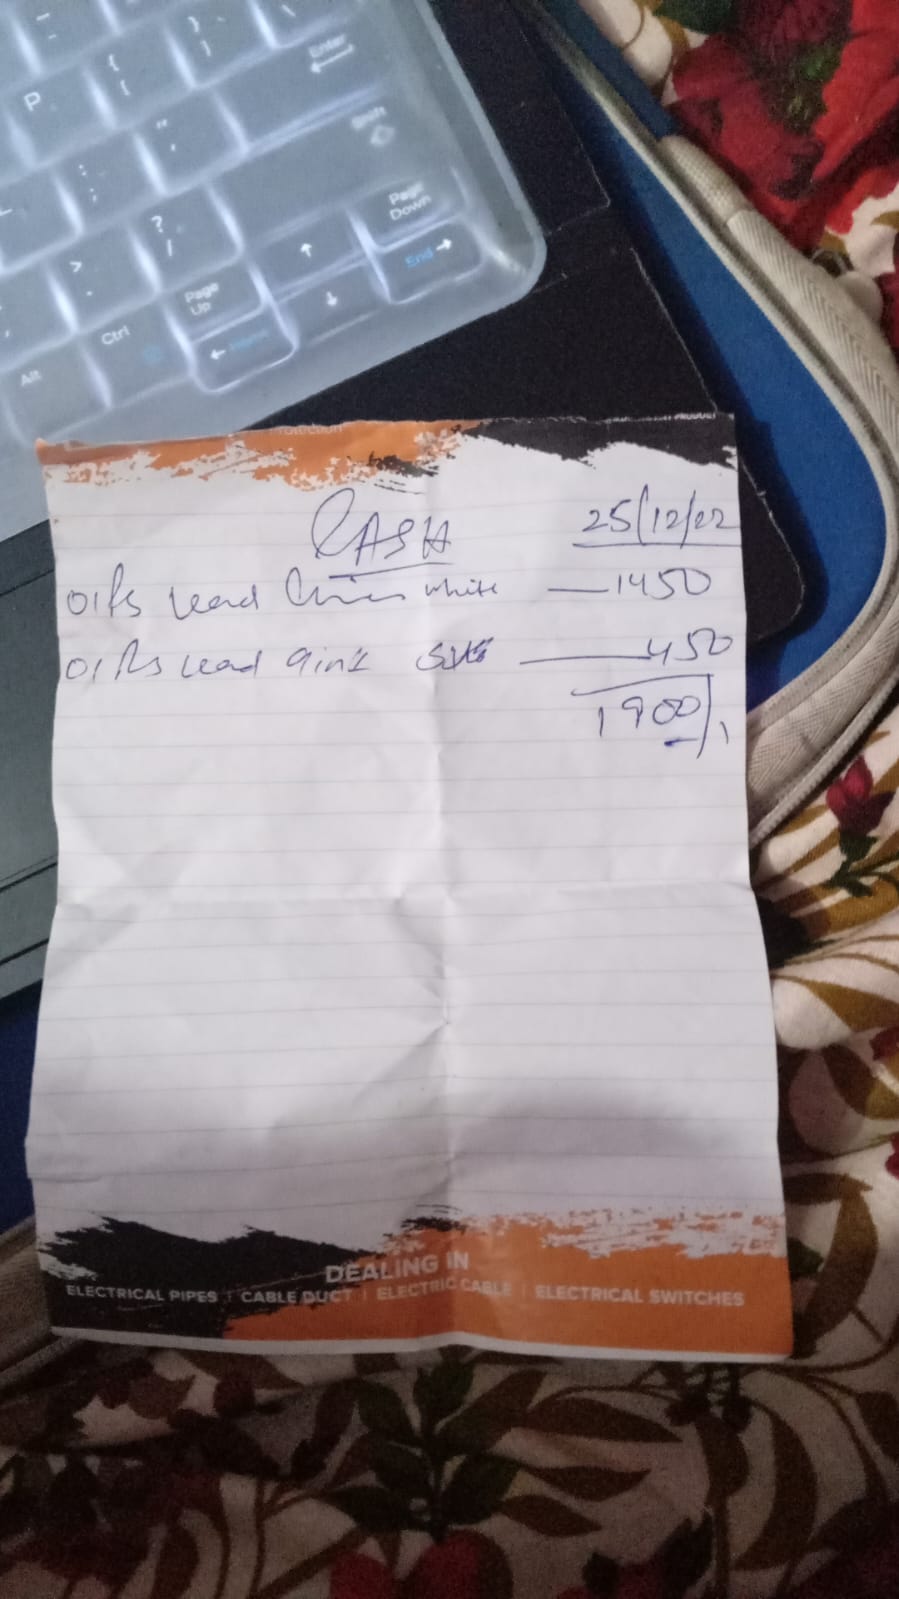 P
{
[
}
]
Enter
:
;
"
'
Shift
>
.
?
/
Page
Up
↑
Page
Down
Alt
Ctrl
← Home
↓
End →
PRODUCT
CASH
25/12/22
01 Ps Lead white — 1450
01 Ps Lead — 450
1900/
DEALING IN
ELECTRICAL PIPES | CABLE DUCT | ELECTRIC CABLE | ELECTRICAL SWITCHES